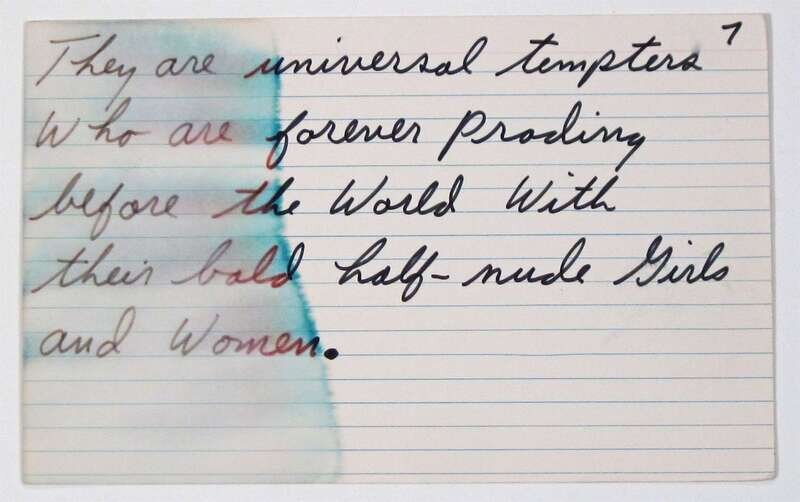 7
They are universal tempters
Who are forever Prading
before the World With
their bald half-nude Girls
and Women.